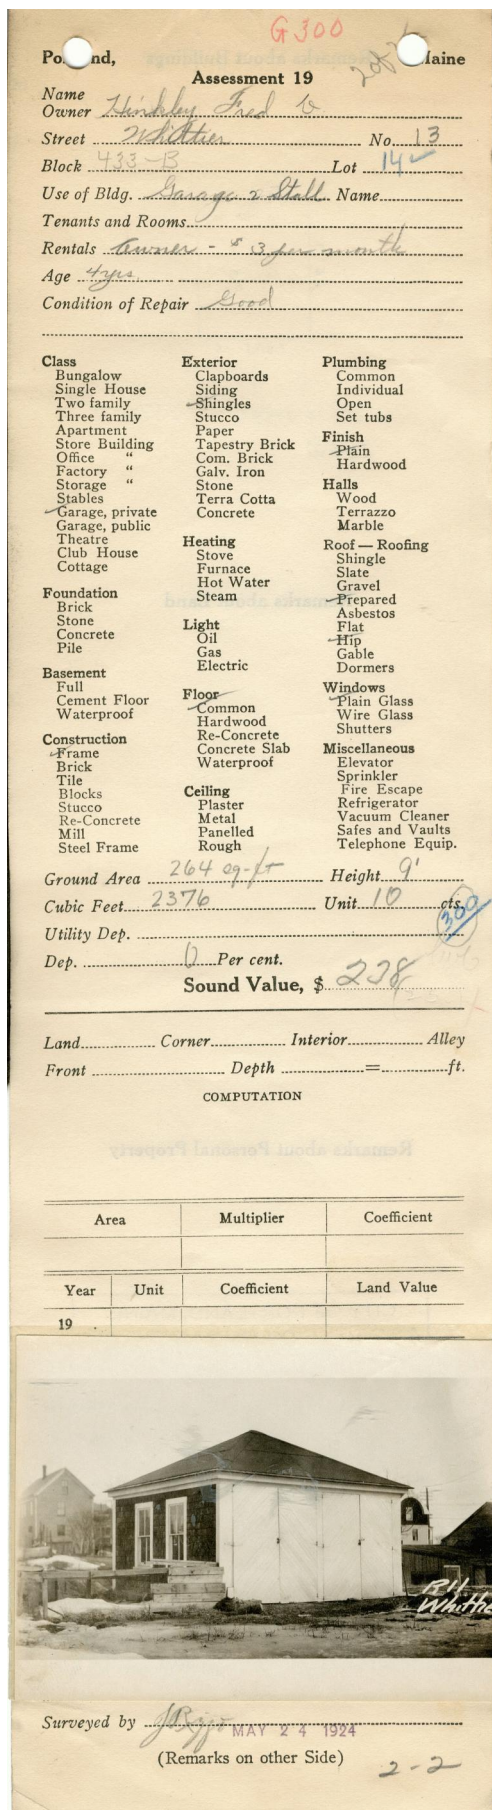 G 300
Po nd, Maine
2 of 2
Assessment 19
Name
Owner Hinkley Fred
Street Whittier No. 13
Block 433-B Lot 14
Use of Bldg. Garage 2 Stall Name
Tenants and Rooms
Rentals Owner - $3 per month
Age 4 yrs.
Condition of Repair Good
Class
Bungalow
Single House
Two family
Three family
Apartment
Store Building
Office "
Factory "
Storage "
Stables
Garage, private
Garage, public
Theatre
Club House
Cottage
Foundation
Brick
Stone
Concrete
Pile
Basement
Full
Cement Floor
Waterproof
Construction
Frame
Brick
Tile
Blocks
Stucco
Re-Concrete
Mill
Steel Frame
Exterior
Clapboards
Siding
Shingles
Stucco
Paper
Tapestry Brick
Com. Brick
Galv. Iron
Stone
Terra Cotta
Concrete
Heating
Stove
Furnace
Hot Water
Steam
Light
Oil
Gas
Electric
Floor
Common
Hardwood
Re-Concrete
Concrete Slab
Waterproof
Ceiling
Plaster
Metal
Panelled
Rough
Plumbing
Common
Individual
Open
Set tubs
Finish
Plain
Hardwood
Halls
Wood
Terrazzo
Marble
Roof — Roofing
Shingle
Slate
Gravel
Prepared
Asbestos
Flat
Hip
Gable
Dormers
Windows
Plain Glass
Wire Glass
Shutters
Miscellaneous
Elevator
Sprinkler
Fire Escape
Refrigerator
Vacuum Cleaner
Safes and Vaults
Telephone Equip.
Ground Area 264 sq-ft Height 9'
Cubic Feet 2376 Unit 10 cts.
300
Utility Dep.
Dep. 0 Per cent.
Sound Value, $ 238
Land Corner Interior Alley
Front Depth = ft.
COMPUTATION
Remarks about Personal Property
Area Multiplier Coefficient
Year Unit Coefficient Land Value
19
RH
Whittie
Surveyed by MAY 24 1924
(Remarks on other Side)
2-2